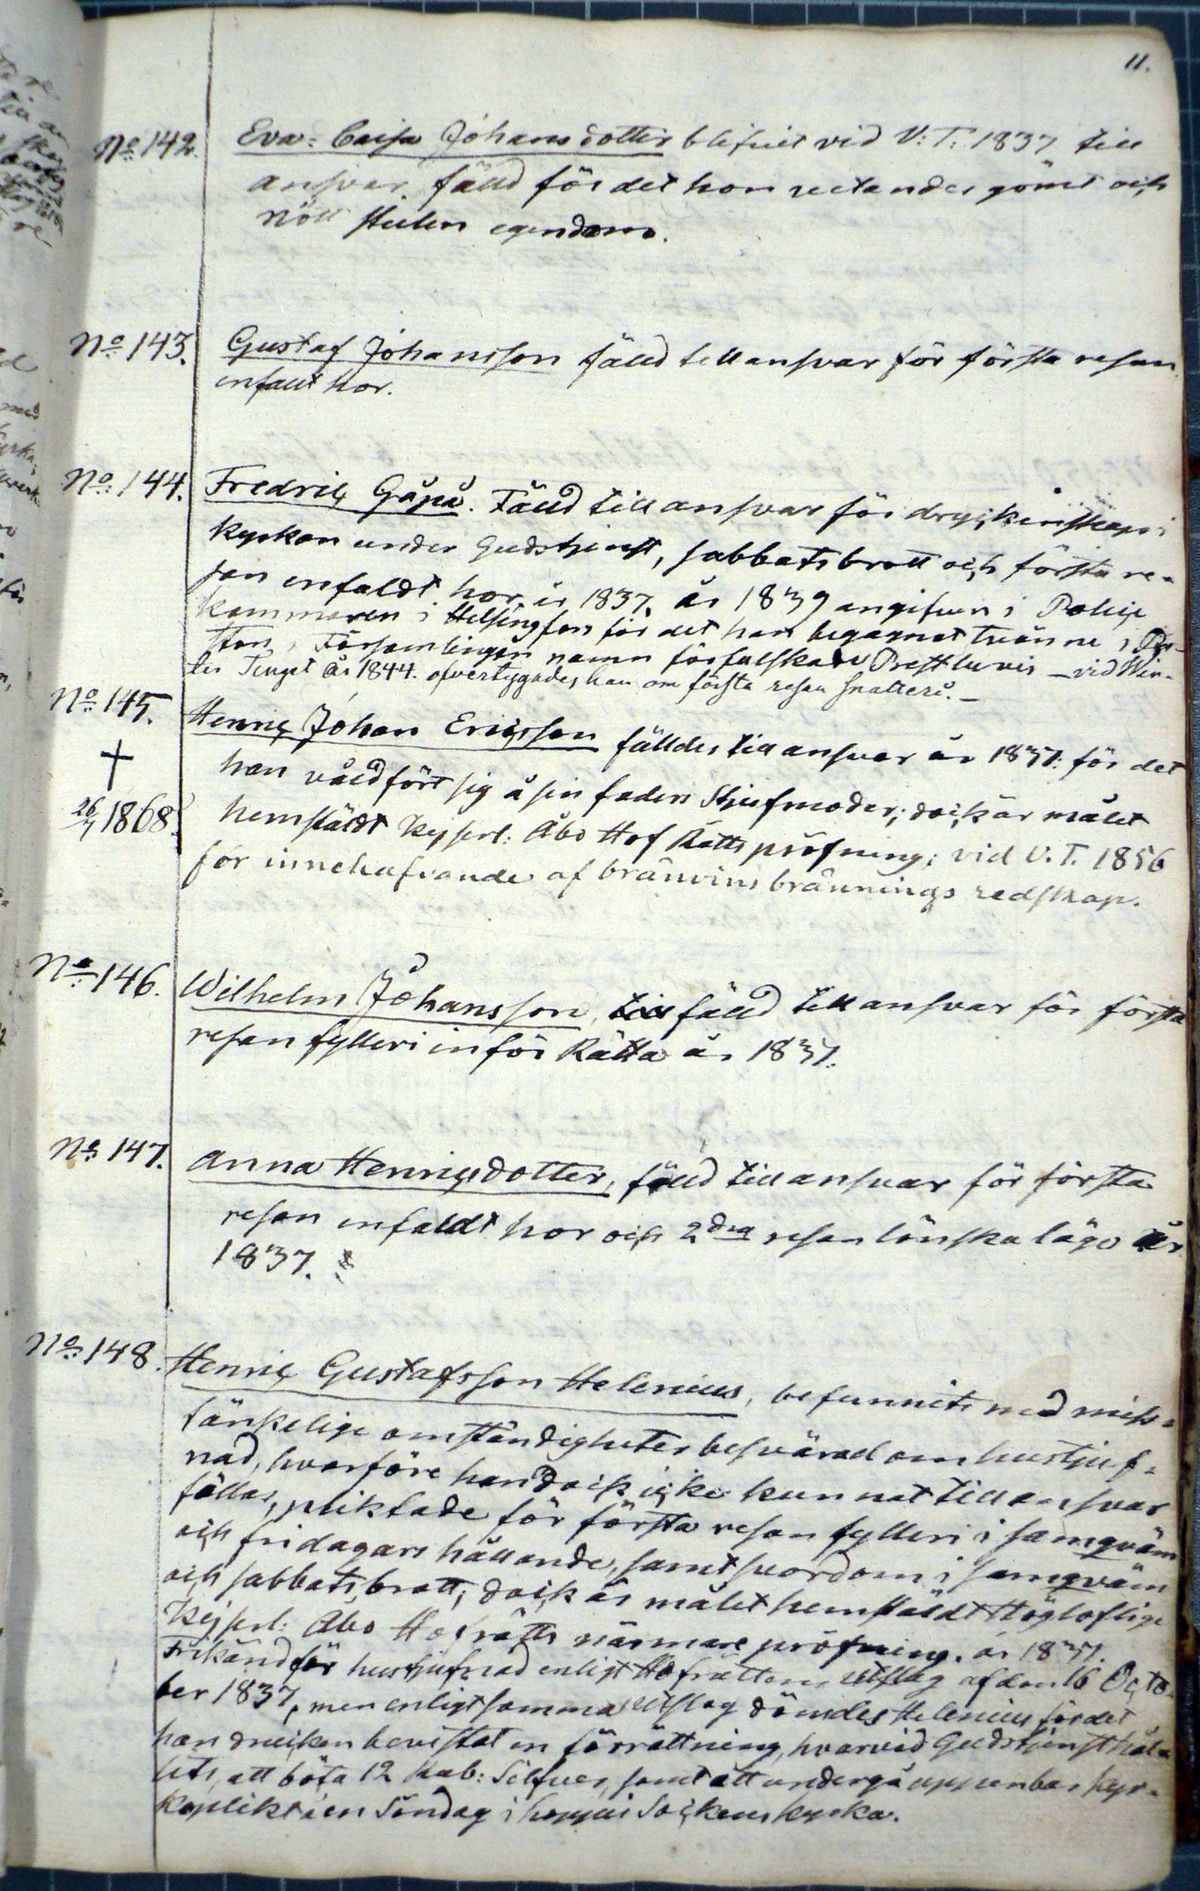 11.
No 142. Eva Caisa Johansdotter blifvit vid V: T. 1837 till
ansvar fälld för det hon vetandes gömt och
nött stulen egendom.
No 143. Gustaf Johansson fälld till ansvar för första resan
enfalt hor.
No 144. Fredric Gåpå. Fälld till ansvar för dryckenskap i
kyrkan under Gudstjenst, sabbatsbrott och första re-
san enfaldt hor år 1837. år 1839 angifven i Police
kammaren i Helsingfors för det han begagnat tvänne, i Pa-
stors Församlingen namn förfalskade Prestbevis – vid Win-
ter Tinget år 1844. öfvertygades han om första resan snatteri. –
No 145. Henric Johan Ericsson fälldes till ansvar år 1837. för det
han våldfört sig å sin faders Stjufmoder; dock är målet
† 26/4 1868. hemstäldt Kejserl: Åbo Hof Rätts pröfning; vid V. T. 1856
för innehafvande af bränvins brännings redskap.
No 146. Wilhelm Johansson, fälld till ansvar för första
resan fylleri inför Rätta år 1837.
No 147. Anna Henricsdotter, fälld till ansvar för första
resan enfaldt hor och 2dra resan lönskaläge år
1837.
No 148. Henric Gustafsson Helenius, befunnits med miss-
tänkelige omständigheter besvärad om hustjuf-
nad, hvarföre han dock icke kunnat till ansvar
fällas, pliktade för första resan fylleri i samqväm
och fridagars hållande, samt svordom i samqväm
och sabbatsbrott; dock är målet hemstäldt Högloflige
Kejserl: Åbo Hofrätts närmare pröfning. år 1837.
Frikänd för hustjufnad enligt Hofrättens utslag af den 16 Octo-
ber 1837, men enligt samma utslag dömdes Helenius för det
han drucken bevistat en förrättning, hvarvid Gudstjenst hål-
lits, att böta 12 Rub: Silfver, samt att undergå uppenbar kyr-
koplikt en Söndag i Sockens kyrka.